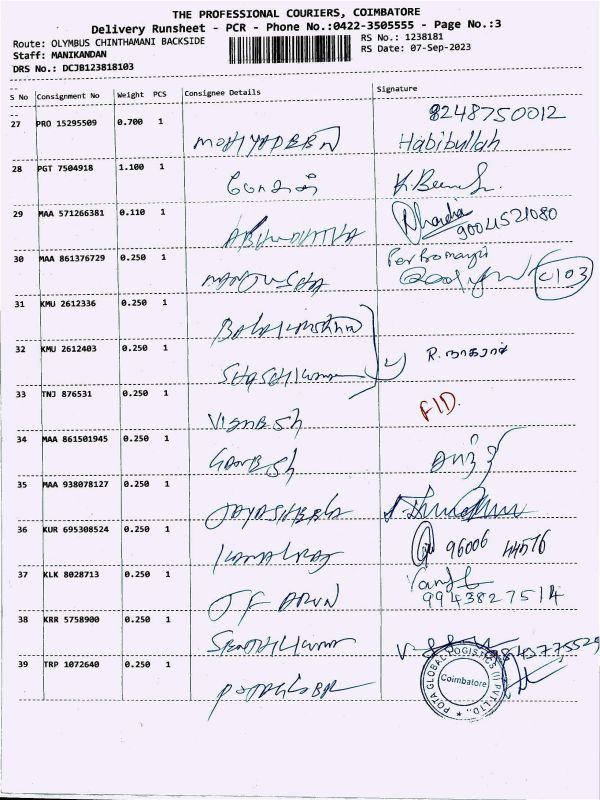 THE PROFESSIONAL COURIERS, COIMBATORE
Delivery Runsheet - PCR - Phone No.:0422-3505555 - Page No.:3
Route: OLYMBUS CHINTHAMANI BACKSIDE
RS No.: 1238181
Staff: MANIKANDAN
RS Date: 07-Sep-2023
DRS No.: DCJB123818103
S No Consignment No Weight PCS Consignee Details Signature
27 PRO 15295509 0.700 1
8248750012
Habibullah
28 PGT 7504918 1.100 1
29 MAA 571266381 0.110 1
9004521080
30 MAA 861376729 0.250 1
C103
31 KMU 2612336 0.250 1
32 KMU 2612403 0.250 1
R. நாகராஜ்
33 TNJ 876531 0.250 1
VIGNESH
FID.
34 MAA 861501945 0.250 1
GANESH
35 MAA 938078127 0.250 1
36 KUR 695308524 0.250 1
KAMALRAJ
96006 44576
37 KLK 8028713 0.250 1
J F ARUN
9943827514
38 KRR 5758900 0.250 1
SENTHILKUMAR
39 TRP 1072640 0.250 1
POTA GLOBAL
POTA GLOBAL LOGISTICS (I) PVT. LTD.,
Coimbatore